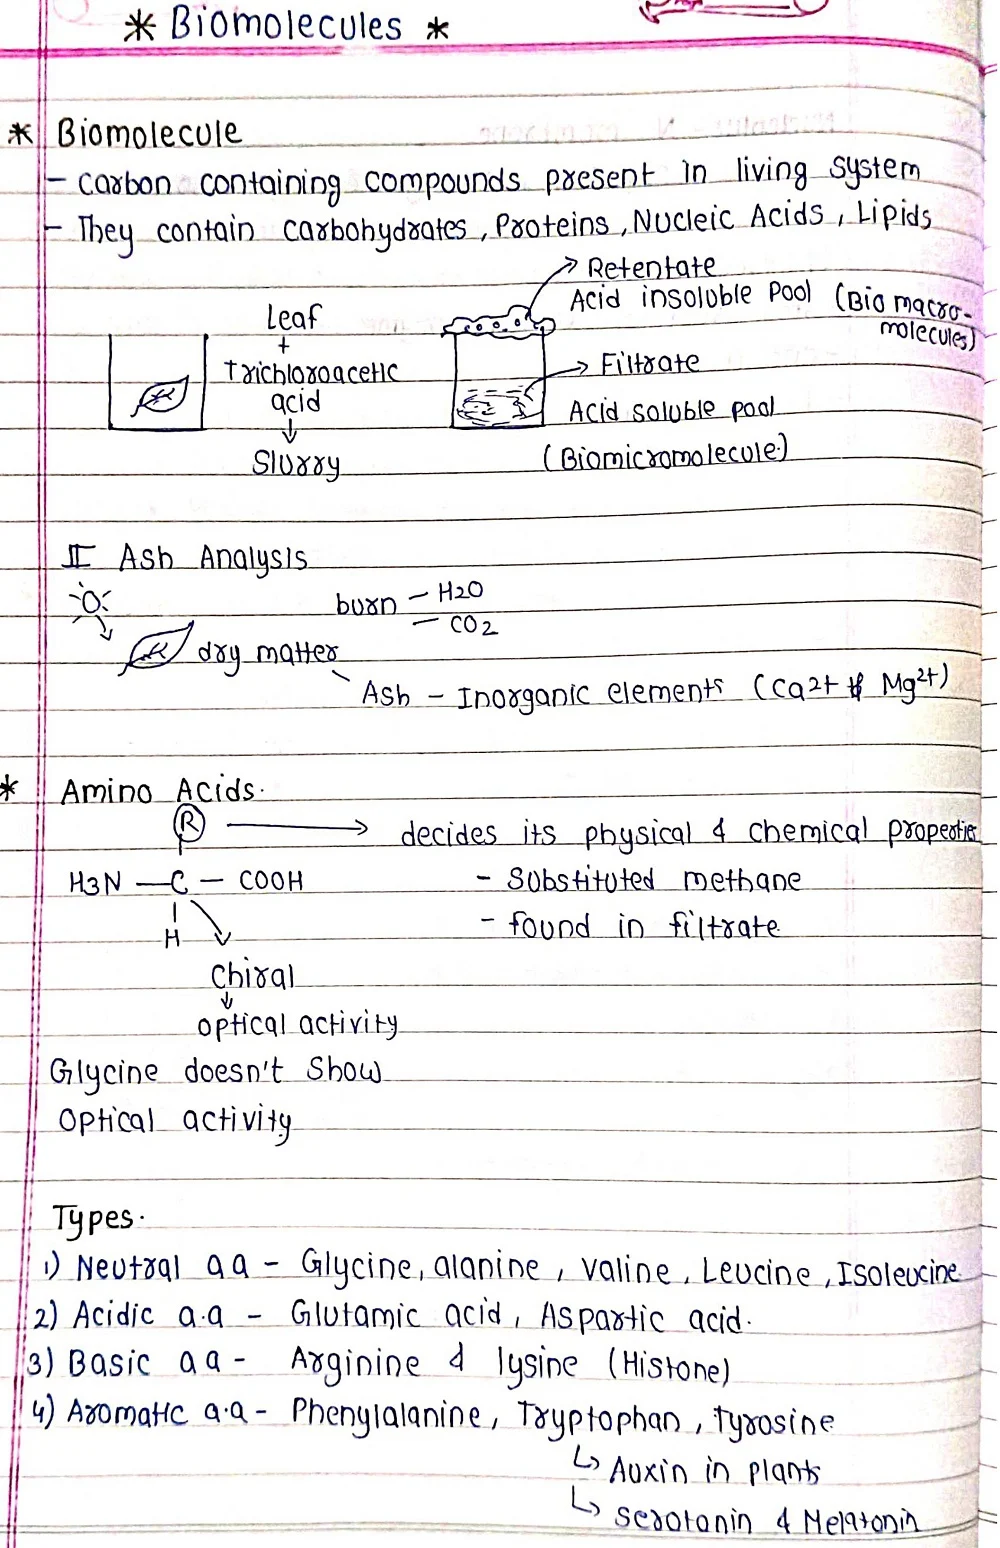 * Biomolecules *
* Biomolecule
- Carbon containing compounds present in living system
- They contain carbohydrates, Proteins, Nucleic Acids, Lipids
Leaf
+
Trichloroacetic
acid
↓
Slurry
→ Retentate
Acid insoluble Pool (Bio macro-
molecules)
→ Filtrate
Acid soluble pool
(Biomicromolecule)
II Ash Analysis
burn - H2O
- CO2
dry matter
Ash - Inorganic elements (Ca2+ & Mg2+)
* Amino Acids.
R → decides its physical & chemical properties
H3N - C - COOH
H
- Substituted methane
- found in filtrate
Chiral
↓
optical activity
Glycine doesn't show
Optical activity
Types.
1) Neutral aa - Glycine, alanine, valine, Leucine, Isoleucine.
2) Acidic a.a - Glutamic acid, Aspartic acid.
3) Basic aa - Arginine & lysine (Histone)
4) Aromatic a.a - Phenylalanine, Tryptophan, Tyrosine
↳ Auxin in plants
↳ Serotonin & Melatonin